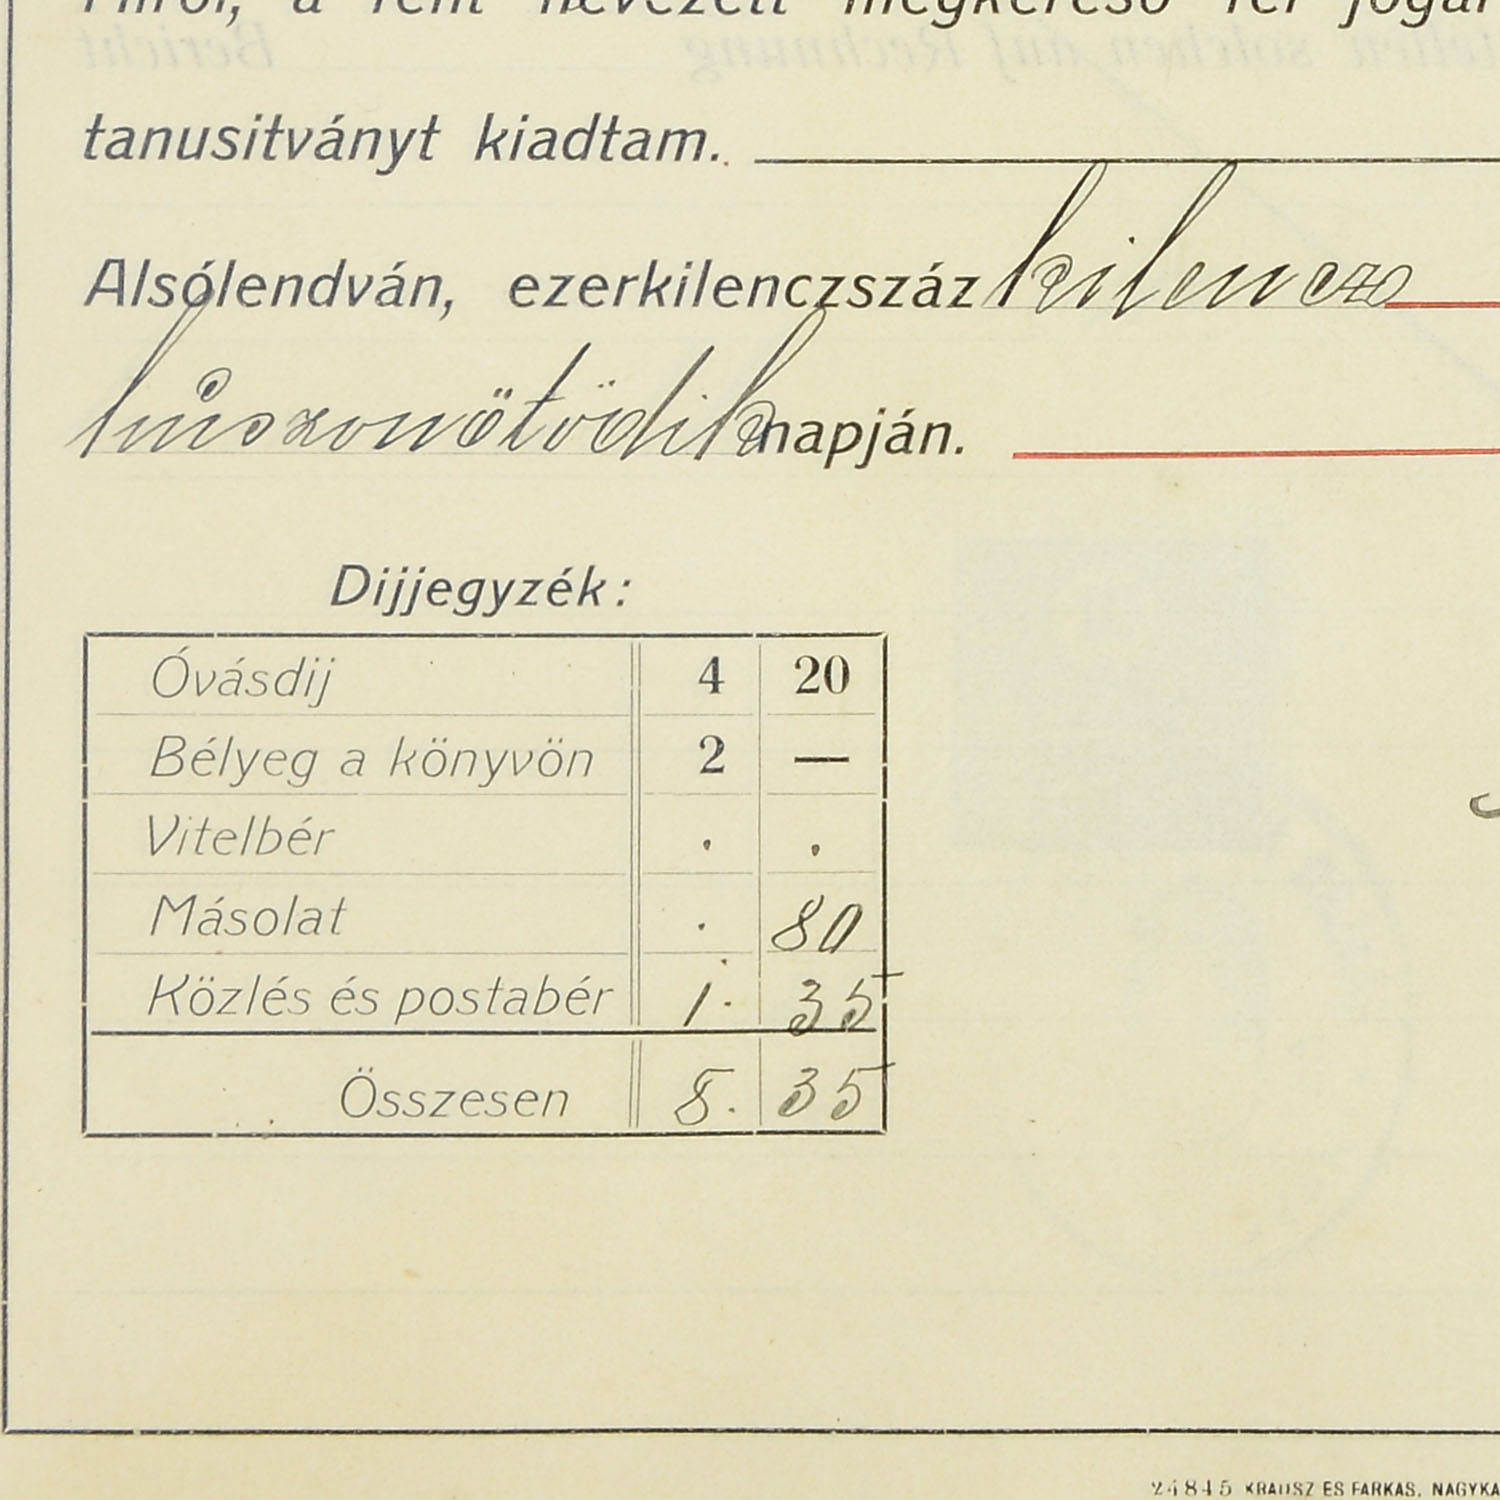 a fent nevezett megkereső fél
tanusitványt kiadtam.
Alsólendván, ezerkilenczszáz kilencz
húszonötödik napján.
Dijjegyzék:
Óvásdij 4 20
Bélyeg a könyvön 2 —
Vitelbér . .
Másolat . 80
Közlés és postabér 1. 35
Összesen 8. 35
24845 KRAUSZ ÉS FARKAS, NAGYKA